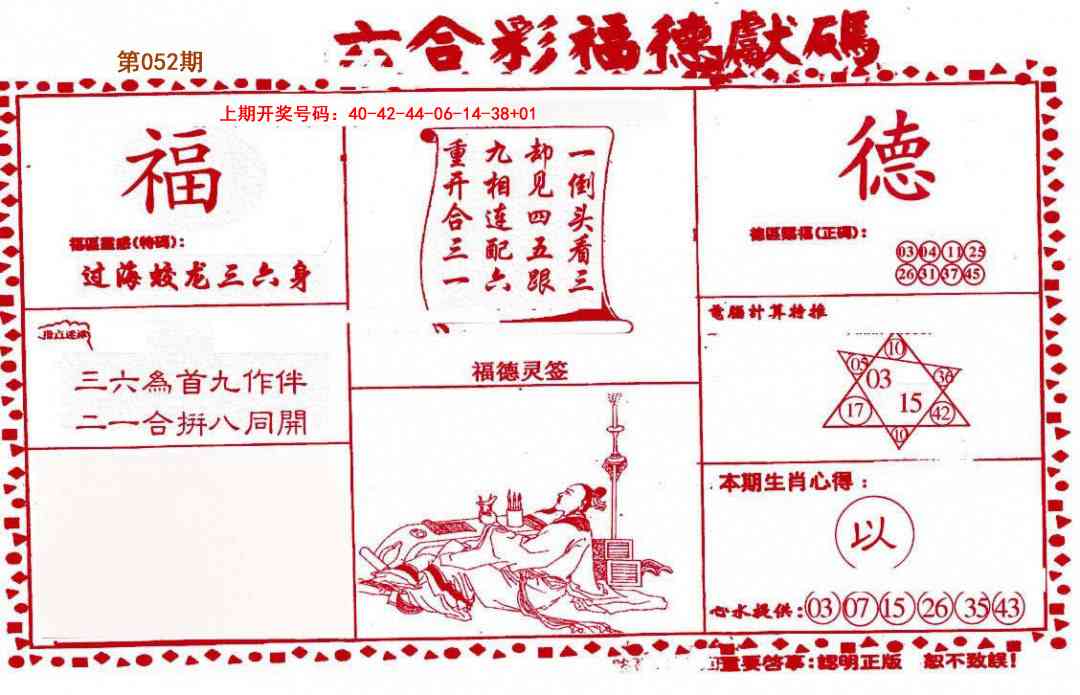 六合彩福德獻碼
第052期
上期开奖号码：40-42-44-06-14-38+01
福
福區靈感(特碼)：
过海蛟龙三六身
三六為首九作伴
二一合拚八同開
一倒头看三
却见四五跟
九相连配六
重开合三一
福德灵签
德
德區賜福(正碼)：
03 04 11 25
26 31 37 45
電腦計算特推
10
05 03 36
17 15 42
10
本期生肖心得：
以
心水提供：03 07 15 26 35 43
重要啓事：認明正版 恕不致誤！